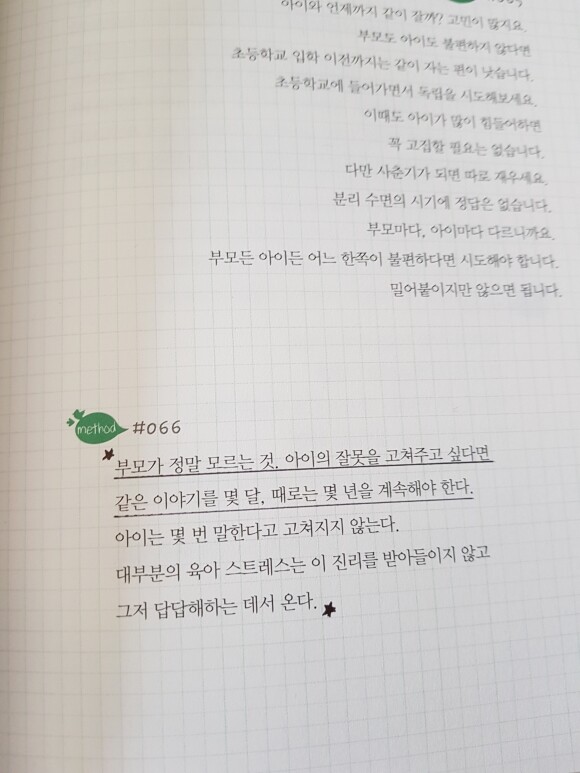 아이와 언제까지 같이 잘까? 고민이 많지요.
부모도 아이도 불편하지 않다면
초등학교 입학 이전까지는 같이 자는 편이 낫습니다.
초등학교에 들어가면서 독립을 시도해보세요.
이때도 아이가 많이 힘들어하면
꼭 고집할 필요는 없습니다.
다만 사춘기가 되면 따로 재우세요.
분리 수면의 시기에 정답은 없습니다.
부모마다, 아이마다 다르니까요.
부모든 아이든 어느 한쪽이 불편하다면 시도해야 합니다.
밀어붙이지만 않으면 됩니다.
method #066
부모가 정말 모르는 것. 아이의 잘못을 고쳐주고 싶다면
같은 이야기를 몇 달, 때로는 몇 년을 계속해야 한다.
아이는 몇 번 말한다고 고쳐지지 않는다.
대부분의 육아 스트레스는 이 진리를 받아들이지 않고
그저 답답해하는 데서 온다.